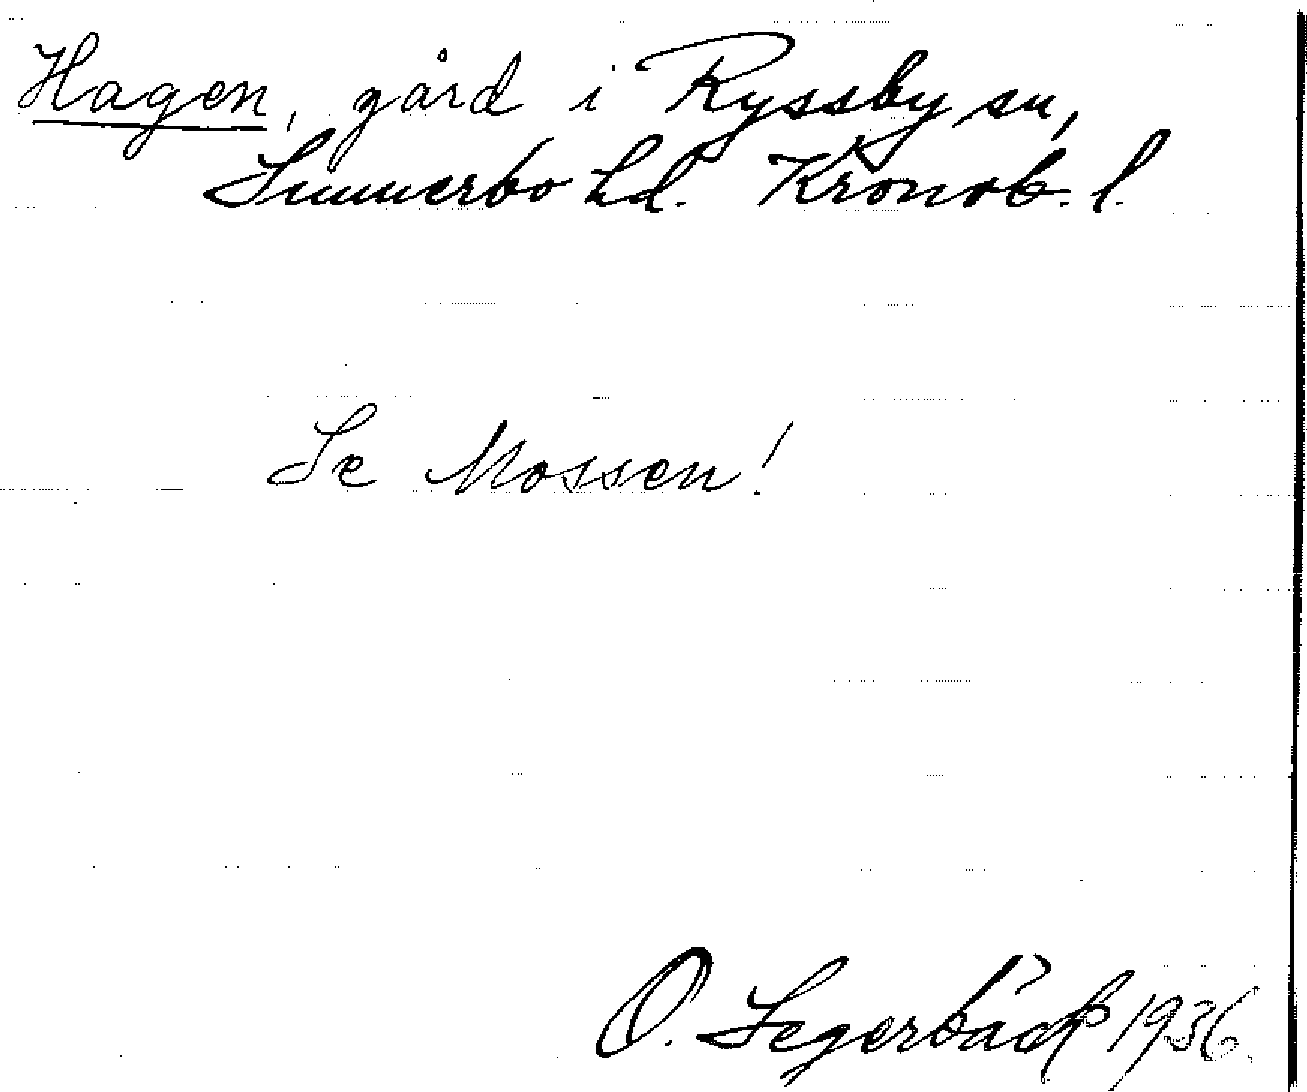 Hagen, gård i Ryssby sn,
Sunnerbo hd. Kronob. l.
Se Mossen!
O. Segerbäck 1936.